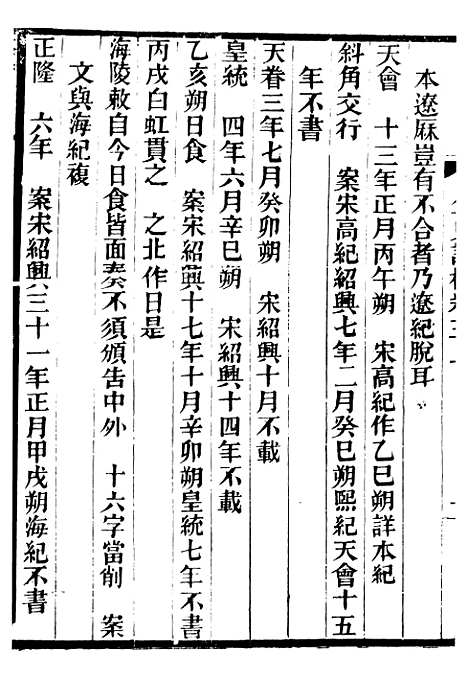 本遼厤豈有不合者乃遼紀脫耳
天會 十三年正月丙午朔 宋高紀作乙巳朔詳本紀
斜角交行 案宋高紀紹興七年二月癸巳朔熙紀天會十五
年不書
天眷三年七月癸卯朔 宋紹興十月不載
皇統 四年六月辛巳朔 宋紹興十四年不載
乙亥朔日食 案宋紹興十七年十月辛卯朔皇統七年不書
丙戌白虹貫之 之北作日是
海陵敕自今日食皆面奏不須頒告中外 十六字當削 案
文與海紀複
正隆 六年 案宋紹興三十一年正月甲戌朔海紀不書